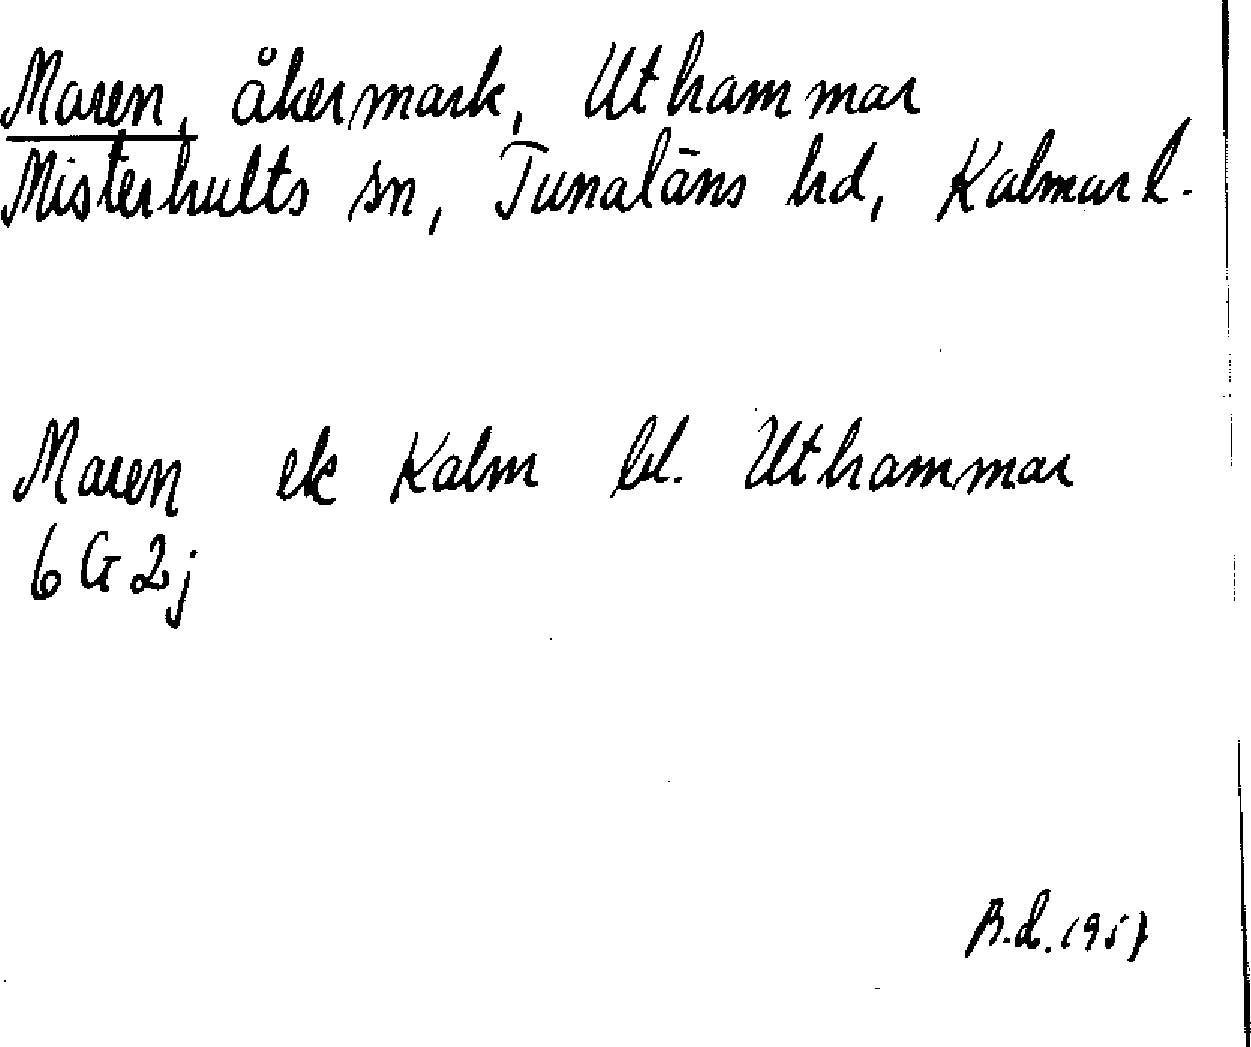 Maren, åkermark, Uthammar
Misterhults sn, Tunaläns hd, Kalmar l.
Maren ek Kalm bl. Uthammar
6 G 2j
B.L. 1957